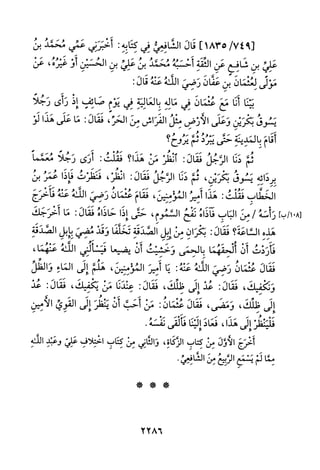 [١٨٣٥/٧٤٩] قَالَ الشَّافِعِيُّ فِي كِتَابِهِ: أَخْبَرَنِي عَمِّي مُحَمَّدُ بنُ
عَلِيِّ بنِ شَافِعٍ عَنِ الثِّقَةِ أَحْسَبُهُ مُحَمَّدُ بنُ عَلِيِّ بنِ الحُسَيْنِ أَوْ غَيْرُهُ، عَنْ
مَوْلًى لِعُثْمَانَ بنِ عَفَّانَ رَضِيَ اللَّهُ عَنْهُ قَالَ:
بَيْنَا أَنَا مَعَ عُثْمَانَ فِي مَالِهِ بِالعَالِيَةِ فِي يَوْمٍ صَائِفٍ إِذْ رَأَى رَجُلًا
يَسُوقُ بَكْرَيْنِ وَعَلَى الأَرْضِ مِثْلُ الفَرَاشِ مِنَ الحَرِّ، فَقَالَ: مَا عَلَى هَذَا لَوْ
أَقَامَ بِالمَدِينَةِ حَتَّى يَبْرُدَ ثُمَّ يَرُوحُ؟
ثُمَّ دَنَا الرَّجُلُ فَقَالَ: انْظُرْ مَنْ هَذَا؟ فَقُلْتُ: أَرَى رَجُلًا مُعَمَّماً
بِرِدَائِهِ يَسُوقُ بَكْرَيْنِ، ثُمَّ دَنَا الرَّجُلُ فَقَالَ: انْظُرْ، فَنَظَرْتُ فَإِذَا عُمَرُ بنُ
الخَطَّابِ فَقُلْتُ: هَذَا أَمِيرُ المُؤْمِنِينَ، فَقَامَ عُثْمَانُ رَضِيَ اللَّهُ عَنْهُ فَأَخْرَجَ
[١٠٨/ب] رَأْسَهُ / مِنَ البَابِ فَآذَاهُ نَفْحُ السَّمُومِ، حَتَّى إِذَا حَاذَاهُ فَقَالَ: مَا أَخْرَجَكَ
هَذِهِ السَّاعَةَ؟ فَقَالَ: بَكْرَانِ مِنْ إِبِلِ الصَّدَقَةِ تَخَلَّفَا وَقَدْ مُضِيَ بِإِبِلِ الصَّدَقَةِ
فَأَرَدْتُ أَنْ أُلْحِقَهُمَا بِالحِمَى وَخَشِيْتُ أَنْ يضيعا فَيَسْأَلُنِي اللَّهُ عَنْهُمَا،
فَقَالَ عُثْمَانُ رَضِيَ اللَّهُ عَنْهُ: يَا أَمِيرَ المُؤْمِنِينَ، هَلُمَّ إِلَى المَاءِ وَالظِّلِّ
وَنَكْفِيكَ، فَقَالَ: عُدْ إِلَى ظِلِّكَ، فَقَالَ: عِنْدَنَا مَنْ يَكْفِيكَ، فَقَالَ: عُدْ
إِلَى ظِلِّكَ، وَمَضَى، فَقَالَ عُثْمَانُ: مَنْ أَحَبَّ أَنْ يَنْظُرَ إِلَى القَوِيِّ الأَمِينِ
فَلْيَنْظُرْ إِلَى هَذَا، فَعَادَ إِلَيْنَا فَأَلْقَى نَفْسَهُ.
أَخْرَجَ الأَوَّلَ مِنْ كِتَابِ الزَّكَاةِ، وَالثَّانِي مِنْ كِتَابِ اخْتِلَافِ عَلِيٍّ وَعَبْدِ اللَّهِ
مِمَّا لَمْ يَسْمَعِ الرَّبِيعُ مِنَ الشَّافِعِيِّ.
* * *
٢٢٨٦